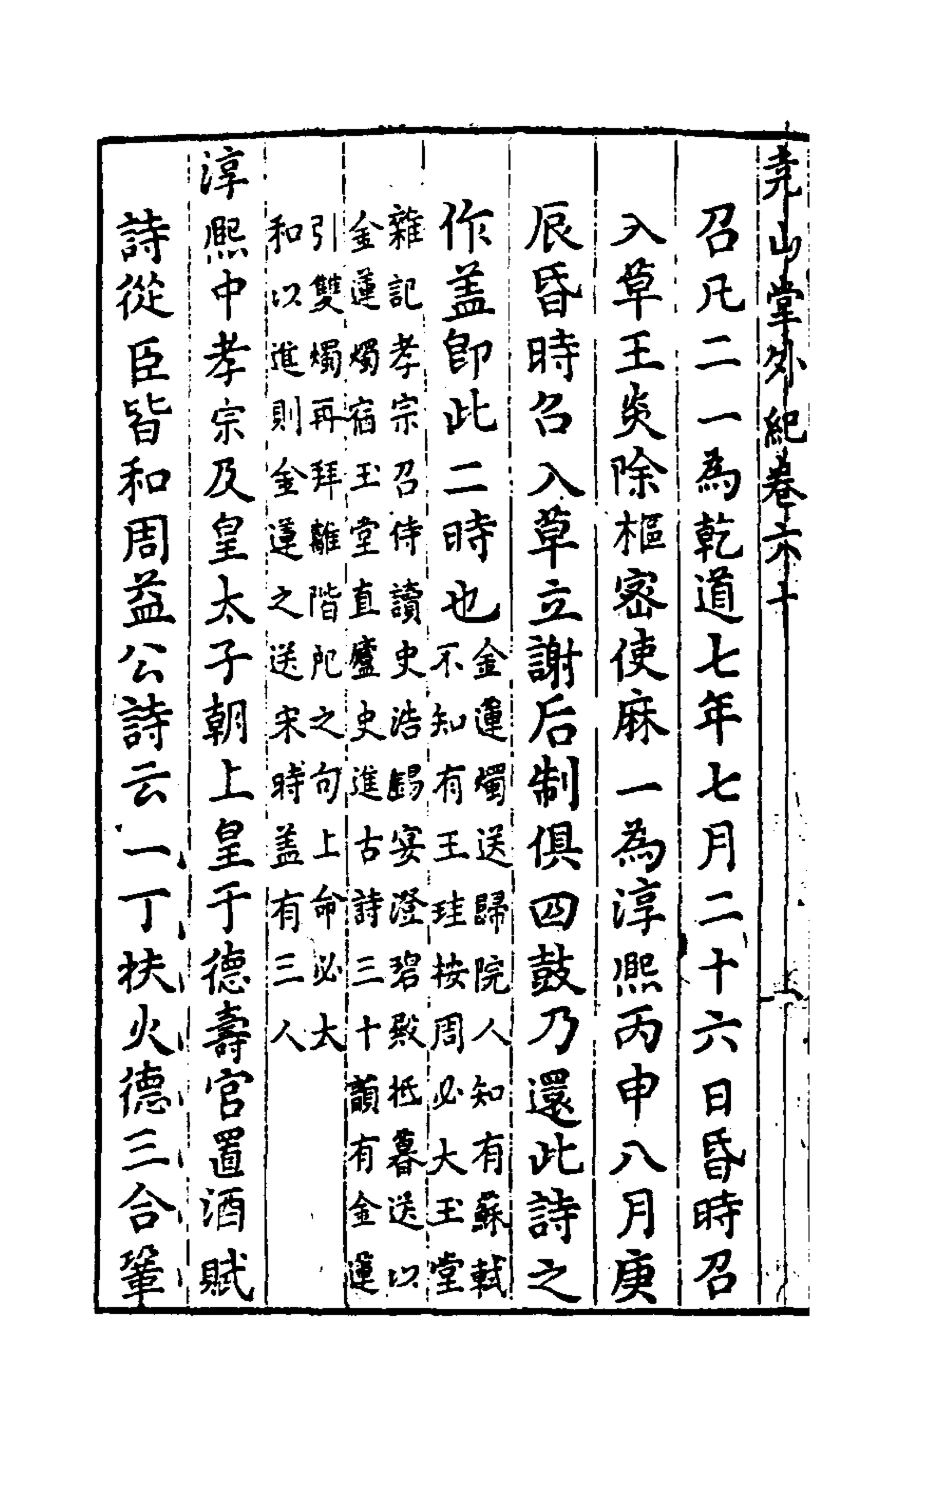 堯山堂外紀卷六十 上
召凡二一為乾道七年七月二十六日昏時召
入草王炎除樞密使麻一為淳熙丙申八月庚
辰昏時召入草立謝后制俱四鼓乃還此詩之
作盖卽此二時也金蓮燭送歸院人知有蘇軾
不知有王珪按周必大玉堂
雜記孝宗召侍讀史浩錫宴澄碧殿抵暮送以
金蓮燭宿玉堂直廬史進古詩三十韻有金蓮
引雙燭再拜離階戺之句上命必大
和以進則金蓮之送宋時盖有三人
淳熙中孝宗及皇太子朝上皇于德壽宮置酒賦
詩從臣皆和周益公詩云一丁扶火德三合鞏